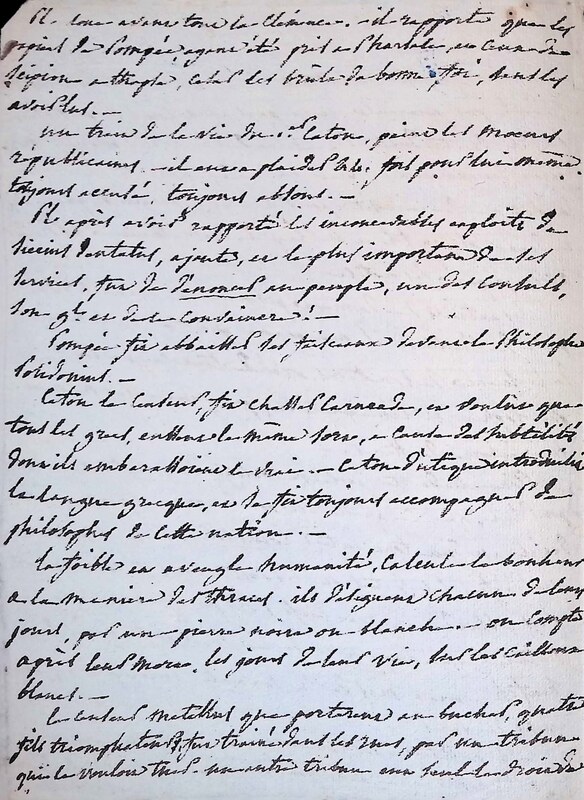 Pl. loue avant tout la Clémence. - il rapporte que les
papiers de Pompée, ayant été pris a Pharsale, et Ceux de
scipion a thapse, Cesar les brûla de bonne foi, sans les
avoir lus. -
un trait de la vie de Caton, peint les moeurs
républicaines - il eut a plaider fois pour lui même.
toujours accusé, toujours absous. -
Pl. après avoir rapporté les incroyables exploits de
siccius dentatus, ajoute, et le plus important de ses
services, fut de dénoncer au peuple, un des Consuls,
son gl. et de le Convaincre! -
Pompée fit abbaisser ses faisceaux devant le Philosophe
Posidonius. -
Caton le Censeur, fit chasser Carneade, et voulut que
tous les grecs, eussent le même sort, a Cause des subtilités
dont ils embarassoient le vrai. - Caton d'utique introduisit
la langue grecque, et se fit toujours accompagner de
philosophes de Cette nation. -
la foible et aveugle humanité, Calcule le bonheur
a la maniere des thraces. ils désignent chacun de leurs
jours, par une pierre noire ou blanche. - on Compte
après leur mort, les jours de leur vie, sur les Cailloux
blancs. -
le Censeur Metellus que porterent au bucher, quatre
fils triomphateurs, fut trainé dans les rues, par un tribun
qui le vouloit tuer. un autre tribun eut seul le droit de